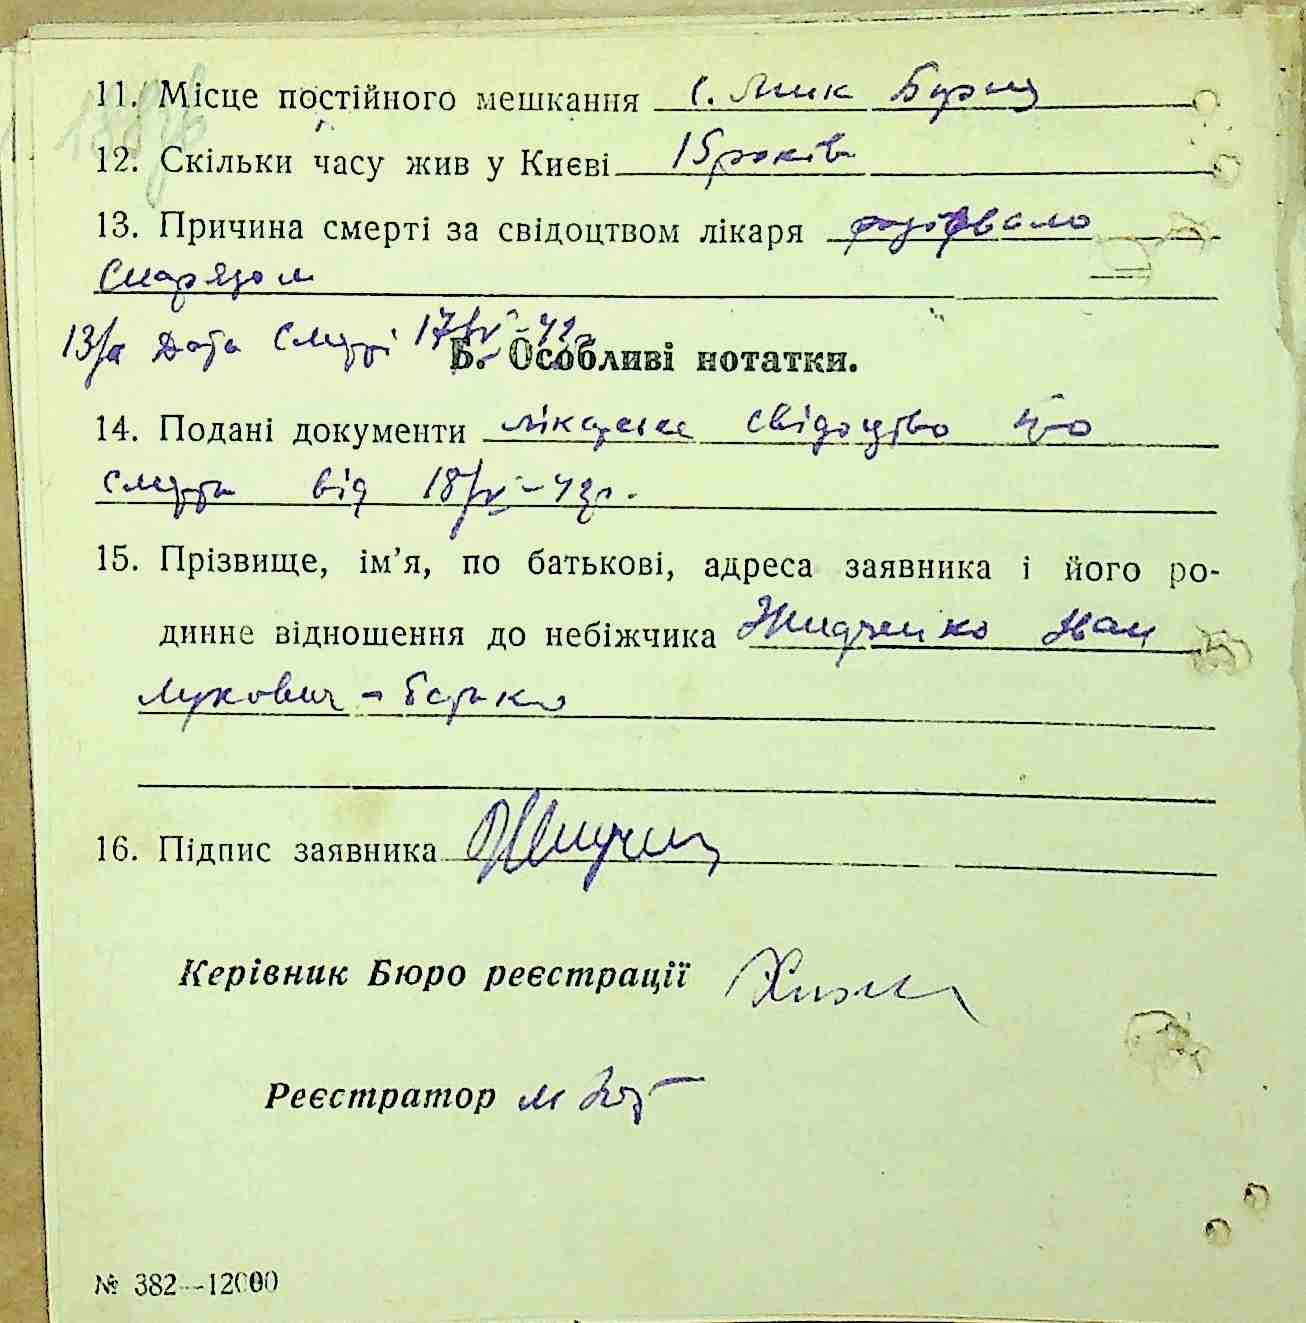 11. Місце постійного мешкання с. Мик Борщ
12. Скільки часу жив у Києві 15 років
13. Причина смерті за свідоцтвом лікаря розірвало
снарядом
13/а Дата смерті 17/IV-42
Б. Особливі нотатки.
14. Подані документи лікарське свідоцтво про
смерть від 18/IV-42р.
15. Прізвище, ім'я, по батькові, адреса заявника і його ро-
динне відношення до небіжчика Жидченко Іван
Лукович - батько
16. Підпис заявника
Керівник Бюро реєстрації
Реєстратор
№ 382—12000